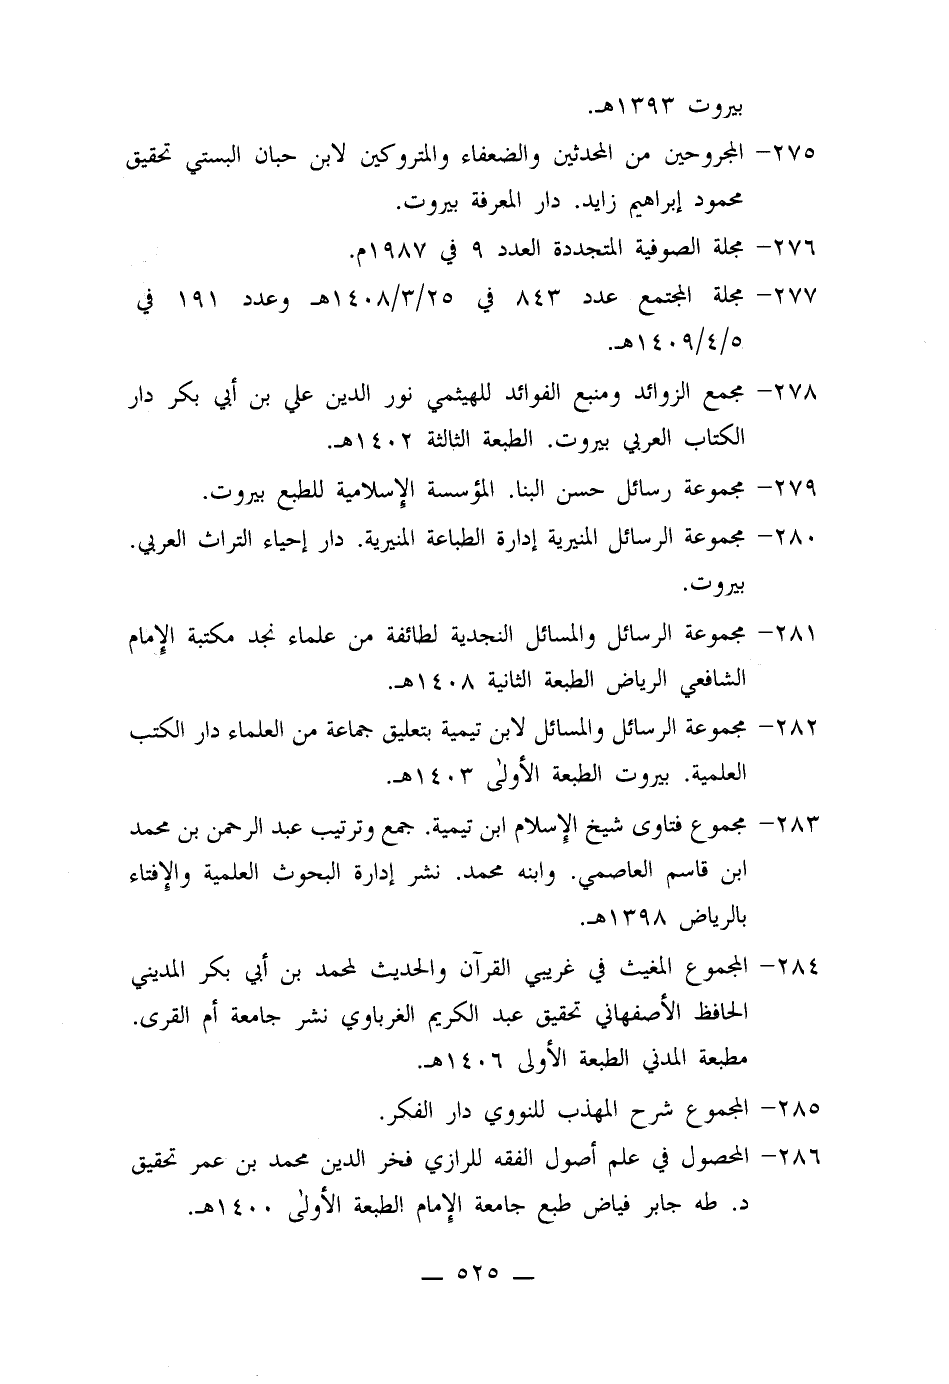 بيروت ١٣٩٣هـ.
٢٧٥- المجروحين من المحدثين والضعفاء والمتروكين لابن حبان البستي تحقيق
محمود إبراهيم زايد. دار المعرفة بيروت.
٢٧٦- مجلة الصوفية المتجددة العدد ٩ في ١٩٨٧م.
٢٧٧- مجلة المجتمع عدد ٨٤٣ في ١٤٠٨/٣/٢٥هـ وعدد ١٩١ في
١٤٠٩/٤/٥هـ.
٢٧٨- مجمع الزوائد ومنبع الفوائد للهيثمي نور الدين علي بن أبي بكر دار
الكتاب العربي بيروت. الطبعة الثالثة ١٤٠٢هـ.
٢٧٩- مجموعة رسائل حسن البنا. المؤسسة الإسلامية للطبع بيروت.
٢٨٠- مجموعة الرسائل المنيرية إدارة الطباعة المنيرية. دار إحياء التراث العربي.
بيروت.
٢٨١- مجموعة الرسائل والمسائل النجدية لطائفة من علماء نجد مكتبة الإمام
الشافعي الرياض الطبعة الثانية ١٤٠٨هـ.
٢٨٢- مجموعة الرسائل والمسائل لابن تيمية بتعليق جماعة من العلماء دار الكتب
العلمية. بيروت الطبعة الأولىٰ ١٤٠٣هـ.
٢٨٣- مجموع فتاوى شيخ الإسلام ابن تيمية. جمع وترتيب عبد الرحمن بن محمد
ابن قاسم العاصمي. وابنه محمد. نشر إدارة البحوث العلمية والإفتاء
بالرياض ١٣٩٨هـ.
٢٨٤- المجموع المغيث في غريبي القرآن والحديث لمحمد بن أبي بكر المديني
الحافظ الأصفهاني تحقيق عبد الكريم الغرباوي نشر جامعة أم القرى.
مطبعة المدني الطبعة الأولى ١٤٠٦هـ.
٢٨٥- المجموع شرح المهذب للنووي دار الفكر.
٢٨٦- المحصول في علم أصول الفقه للرازي فخر الدين محمد بن عمر تحقيق
د. طه جابر فياض طبع جامعة الإمام الطبعة الأولىٰ ١٤٠٠هـ.
— ٥٢٥ —